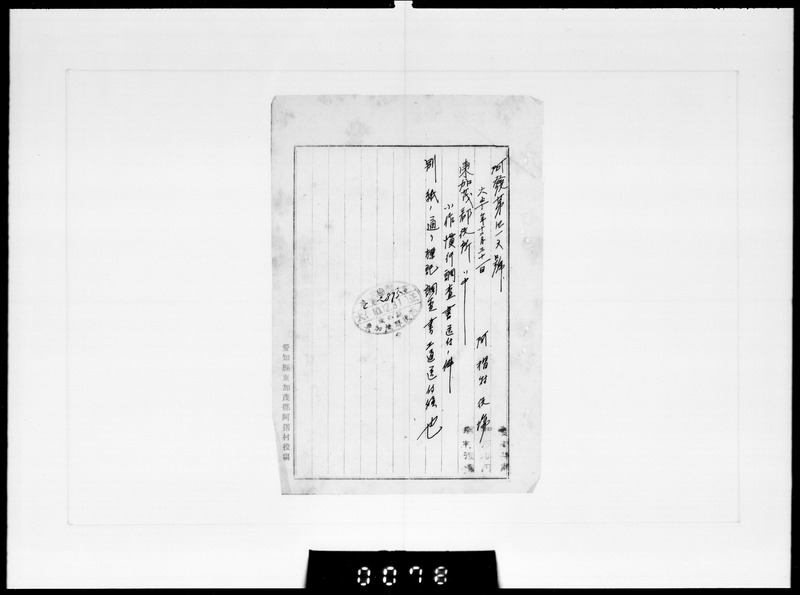 阿發第廿一又號
大正十年十二月三十一日
阿摺村役場
東加茂郡役所 御中
小作慣行調査書送付ノ件
別紙ノ通リ標記調査書壱通送付候也
愛知縣東加茂郡阿摺村役場
0078